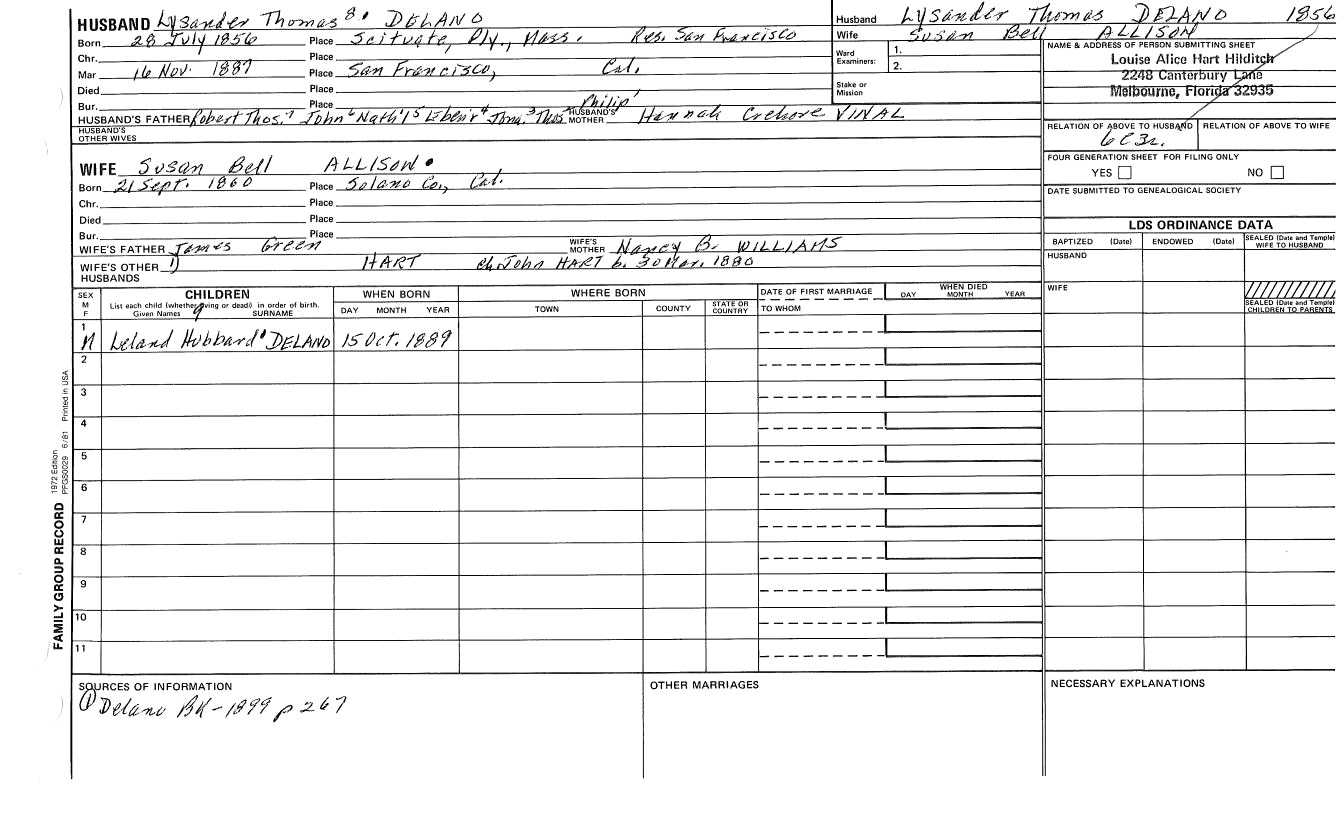 HUSBAND Lysander Thomas 8. DELANO
Born 28 July 1856 Place Scituate, Ply., Mass. Res. San Francisco
Chr. Place
Mar 16 Nov. 1887 Place San Francisco, Cal.
Died Place
Bur. Place
HUSBAND'S FATHER Robert Thos.7 John6 Nath'l5 Eben'r4 Jona.3 Thos2 Philip1 HUSBAND'S MOTHER Hannah Crehore VINAL
HUSBAND'S OTHER WIVES
WIFE Susan Bell ALLISON
Born 21 Sept. 1860 Place Solano Co., Cal.
Chr. Place
Died Place
Bur. Place
WIFE'S FATHER James Green WIFE'S MOTHER Nancy B. WILLIAMS
WIFE'S OTHER HUSBANDS 1) HART ch. John HART b. 30 Mar. 1880
Husband Lysander Thomas DELANO 1856
Wife Susan Bell ALLISON
Ward Examiners: 1. 2.
Stake or Mission
NAME & ADDRESS OF PERSON SUBMITTING SHEET
Louise Alice Hart Hilditch
2248 Canterbury Lane
Melbourne, Florida 32935
RELATION OF ABOVE TO HUSBAND RELATION OF ABOVE TO WIFE
6C3r.
FOUR GENERATION SHEET FOR FILING ONLY
YES NO
DATE SUBMITTED TO GENEALOGICAL SOCIETY
LDS ORDINANCE DATA
BAPTIZED (Date) ENDOWED (Date) SEALED (Date and Temple) WIFE TO HUSBAND
HUSBAND
WIFE
SEALED (Date and Temple) CHILDREN TO PARENTS
SEX M F CHILDREN WHEN BORN WHERE BORN DATE OF FIRST MARRIAGE WHEN DIED
List each child (whether living or dead) in order of birth.
Given Names SURNAME DAY MONTH YEAR TOWN COUNTY STATE OR COUNTRY TO WHOM DAY MONTH YEAR
1 M Leland Hubbard 9 DELANO 15 Oct. 1889
2
3
4
5
6
7
8
9
10
11
FAMILY GROUP RECORD 1972 Edition PFGS0029 6/81 Printed in USA
SOURCES OF INFORMATION
① Delano BK-1899 p 267
OTHER MARRIAGES
NECESSARY EXPLANATIONS